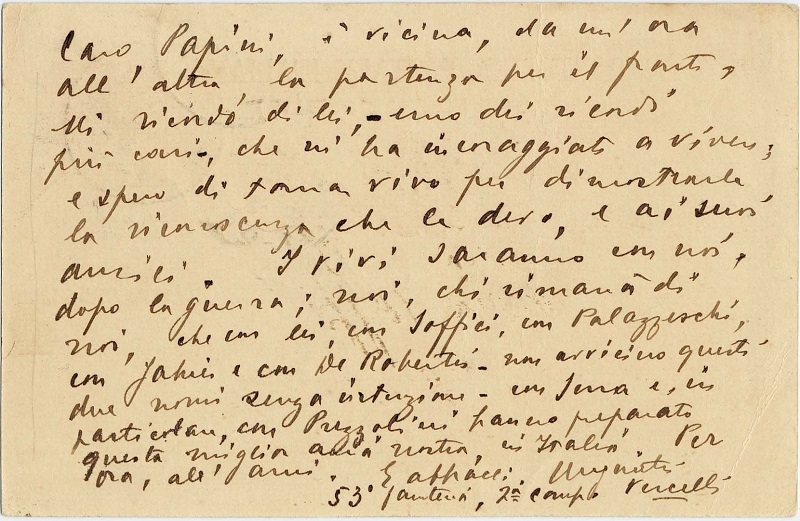 Caro Papini, è vicina, da un'ora
all'altra, la partenza per il fronte,
Mi ricordo di lei, - uno dei ricordi
più cari -, che mi ha incoraggiato a vivere;
e spero di tornar vivo per dimostrarle
la riconoscenza che le devo, e ai suoi
amici. I vivi saranno con noi,
dopo la guerra; noi, chi rimarrà di
noi, che con lei, con Soffici, con Palazzeschi,
con Jahier e con De Robertis - non avvicino questi
due nomi senza intenzione - con Serra e, in
particolare, con Prezzolini hanno preparato
questa miglior aria nostra, in Italia. Per
ora, all'armi. E abbracci. Ungaretti
53° fanteria, 2ª comp. Vercelli